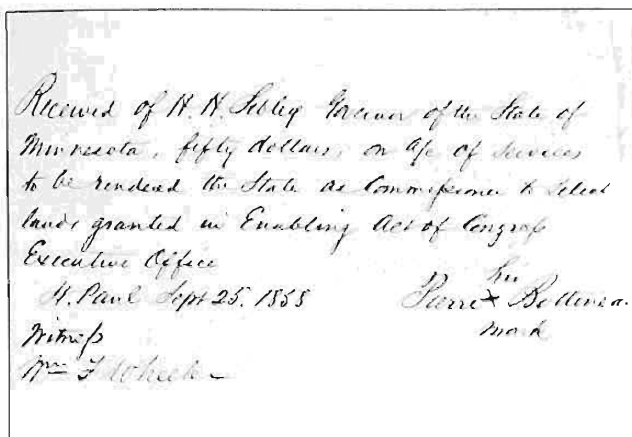 Received of H. H. Sibley Governor of the State of
Minnesota, fifty dollars, on a/c of services
to be rendered the State as Commissioner to select
lands granted in Enabling Act of Congress
Executive Office
St. Paul Sept 25. 1858
his
Pierre X Bottinea
mark
Witness
Wm F Wheeler